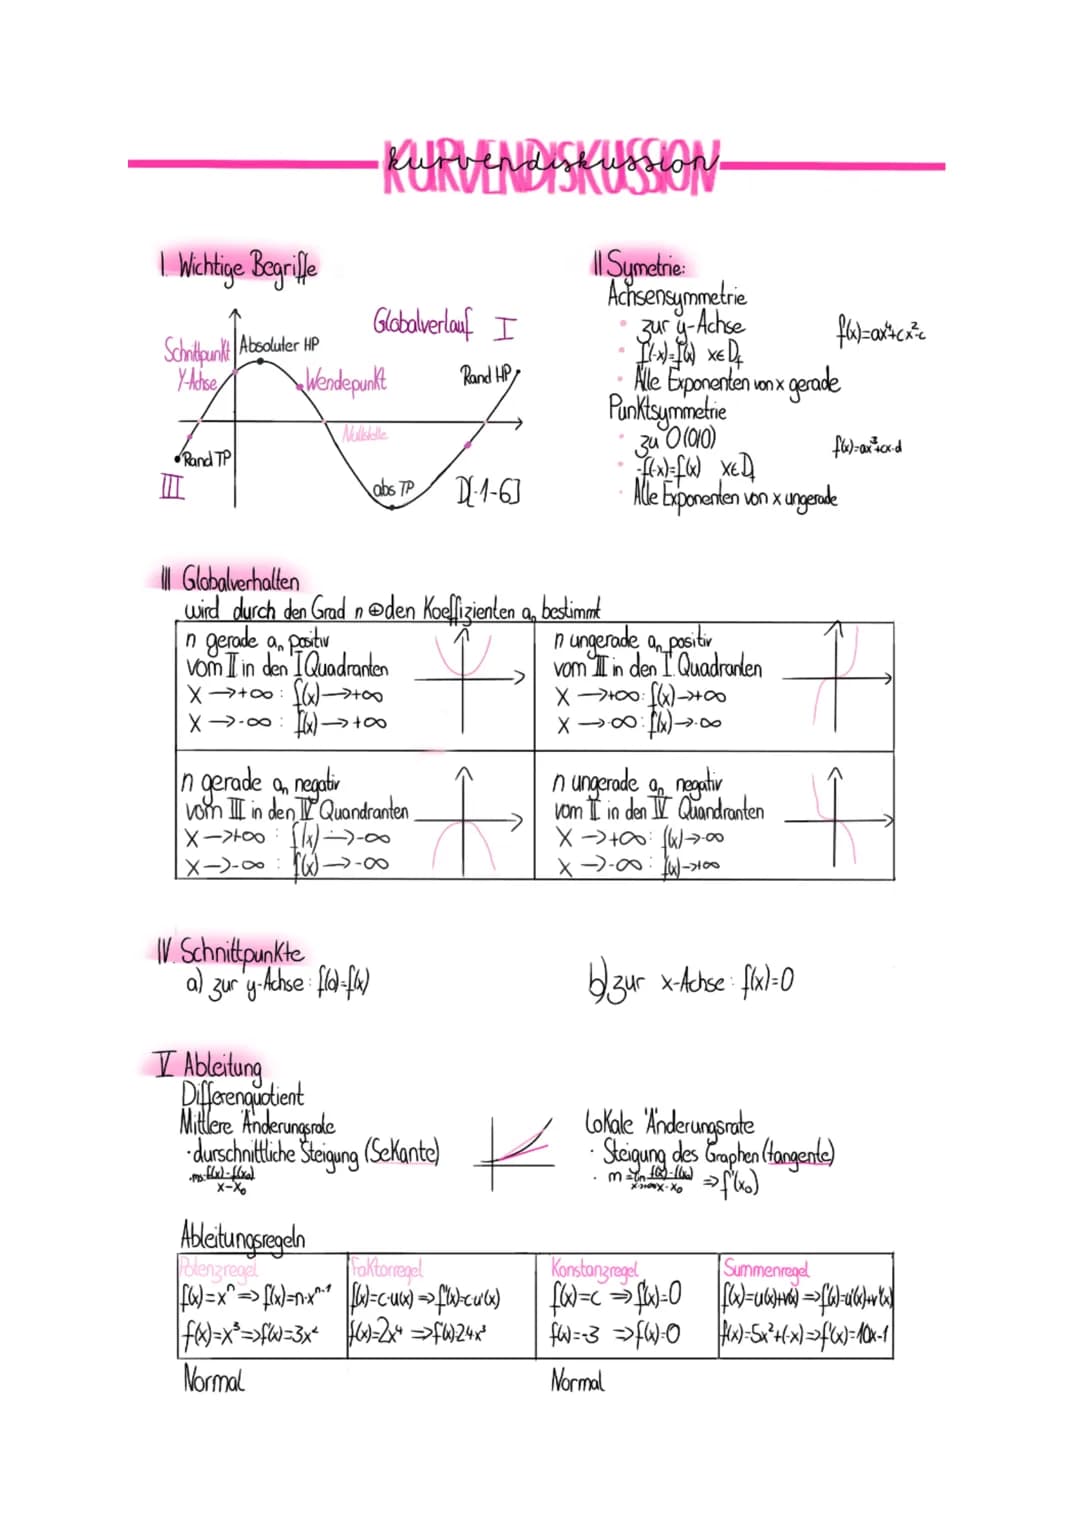 kurvendiskussion
KURVENDISKUSSION
I. Wichtige Begriffe
Globalverlauf I
Schnittpunkt
Y-Achse
Absoluter HP
Wendepunkt
Rand HP
Nullstelle
Rand TP
III
abs TP
D[-1-6]
II Symetrie:
Achsensymmetrie
• zur y-Achse
f(x)=ax⁴+cx²-c
• f(-x)=f(x) x∈Df
• Alle Exponenten von x gerade
Punktsymmetrie
• zu O(0/0)
f(x)=ax³+cx-d
• -f(-x)=f(x) x∈Df
• Alle Exponenten von x ungerade
III Globalverhalten
wird durch den Grad n ⊕ den Koeffizienten aₙ bestimmt
n gerade aₙ positiv
vom II in den I Quadranten
X→+∞: f(x)→+∞
X→-∞: f(x)→+∞
n ungerade aₙ positiv
vom III in den I. Quadranten
X→+∞: f(x)→+∞
X→-∞: f(x)→-∞
n gerade aₙ negativ
vom III in den IV Quandranten
X→+∞: f(x)→-∞
X→-∞: f(x)→-∞
n ungerade aₙ negativ
vom II in den IV Quandranten
X→+∞: f(x)→-∞
X→-∞: f(x)→+∞
IV. Schnittpunkte
a) zur y-Achse: f(0)=f(x)
b) zur x-Achse: f(x)=0
V Ableitung
Differenquotient
Mittlere Änderungsrate
· durschnittliche Steigung (Sekante)
f(x)-f(x₀)
x-x₀
Lokale Änderungsrate
· Steigung des Graphen (tangente)
· m= f(x)-f(x₀) ⇒ f'(x₀)
x-x₀
Ableitungsregeln
Potenzregel
f(x)=xⁿ ⇒ f(x)=n·xⁿ⁻¹
f(x)=x³ ⇒ f'(x)=3x²
Faktorregel
f(x)=c·u(x) ⇒ f'(x)=c·u'(x)
f(x)=2x⁴ ⇒ f'(x)24x³
Konstanzregel
f(x)=c ⇒ f'(x)=0
f(x)=-3 ⇒ f(x)=0
Summenregel
f(x)=u(x)+v(x) ⇒ f'(x)=u'(x)+v'(x)
f(x)=5x²+(-x) ⇒ f'(x)=10x-1
Normal
Normal